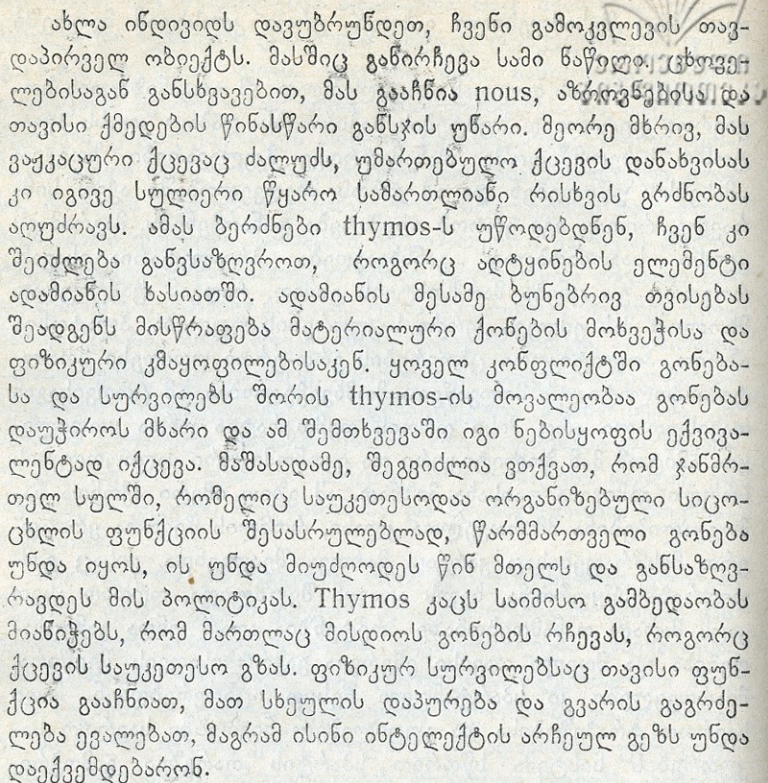 ახლა ინდივიდს დავუბრუნდეთ, ჩვენი გამოკვლევის თავ-
დაპირველ ობიექტს. მასშიც განირჩევა სამი ნაწილი. ცხოვე-
ლებისაგან განსხვავებით, მას გააჩნია nous, აზროვნებისა და
თავისი ქმედების წინასწარი განსჯის უნარი. მეორე მხრივ, მას
ვაჟკაცური ქცევაც ძალუძს, უმართებულო ქცევის დანახვისას
კი იგივე სულიერი წყარო სამართლიანი რისხვის გრძნობას
აღუძრავს. ამას ბერძნები thymos-ს უწოდებდნენ, ჩვენ კი
შეიძლება განვსაზღვროთ, როგორც აღტყინების ელემენტი
ადამიანის ხასიათში. ადამიანის მესამე ბუნებრივ თვისებას
შეადგენს მისწრაფება მატერიალური ქონების მოხვეჭისა და
ფიზიკური კმაყოფილებისაკენ. ყოველ კონფლიქტში გონება-
სა და სურვილებს შორის thymos-ის მოვალეობაა გონებას
დაუჭიროს მხარი და ამ შემთხვევაში იგი ნებისყოფის ექვივა-
ლენტად იქცევა. მაშასადამე, შეგვიძლია ვთქვათ, რომ ჯანმრ-
თელ სულში, რომელიც საუკეთესოდაა ორგანიზებული სიცო-
ცხლის ფუნქციის შესასრულებლად, წარმმართველი გონება
უნდა იყოს, ის უნდა მიუძღოდეს წინ მთელს და განსაზღვ-
რავდეს მის პოლიტიკას. Thymos კაცს საიმისო გამბედაობას
მიანიჭებს, რომ მართლაც მისდიოს გონების რჩევას, როგორც
ქცევის საუკეთესო გზას. ფიზიკურ სურვილებსაც თავისი ფუნ-
ქცია გააჩნიათ, მათ სხეულის დაპურება და გვარის გაგრძე-
ლება ევალებათ, მაგრამ ისინი ინტელექტის არჩეულ გეზს უნდა
დაექვემდებარონ.